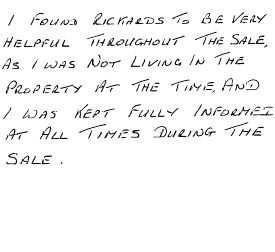 I FOUND RICKARDS TO BE VERY
HELPFUL THROUGHOUT THE SALE,
AS I WAS NOT LIVING IN THE
PROPERTY AT THE TIME, AND
I WAS KEPT FULLY INFORMED
AT ALL TIMES DURING THE
SALE.